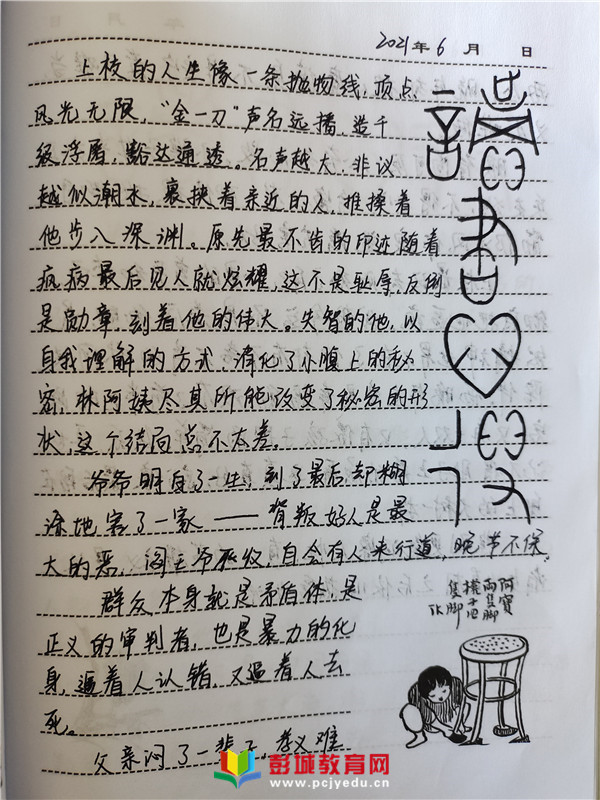 2021年6月 日
上校的人生像一条抛物线,顶点
风光无限,“金一刀”声名远播,造千
级浮屠,豁达通透。名声越大,非议
越似潮水,裹挟着亲近的人,推搡着
他步入深渊。原先最不齿的印迹随着
疯病最后见人就炫耀,这不是耻辱,反倒
是勋章,刻着他的伟大。失智的他,以
自我理解的方式,消化了小腹上的秘
密,林阿姨尽其所能改变了秘密的形
状,这个结局总不太差。
爷爷明白了一生,到了最后却糊
涂地害了一家——背叛好人是最
大的恶,阎王爷不收,自会有人来行道,晚节不保
群众本身就是矛盾体,是
正义的审判者,也是暴力的化
身,逼着人认错,又逼着人去
死。
父亲闷了一辈子,孝义难
阿寶
兩隻腳
彭城教育网
www.pcjyedu.cn